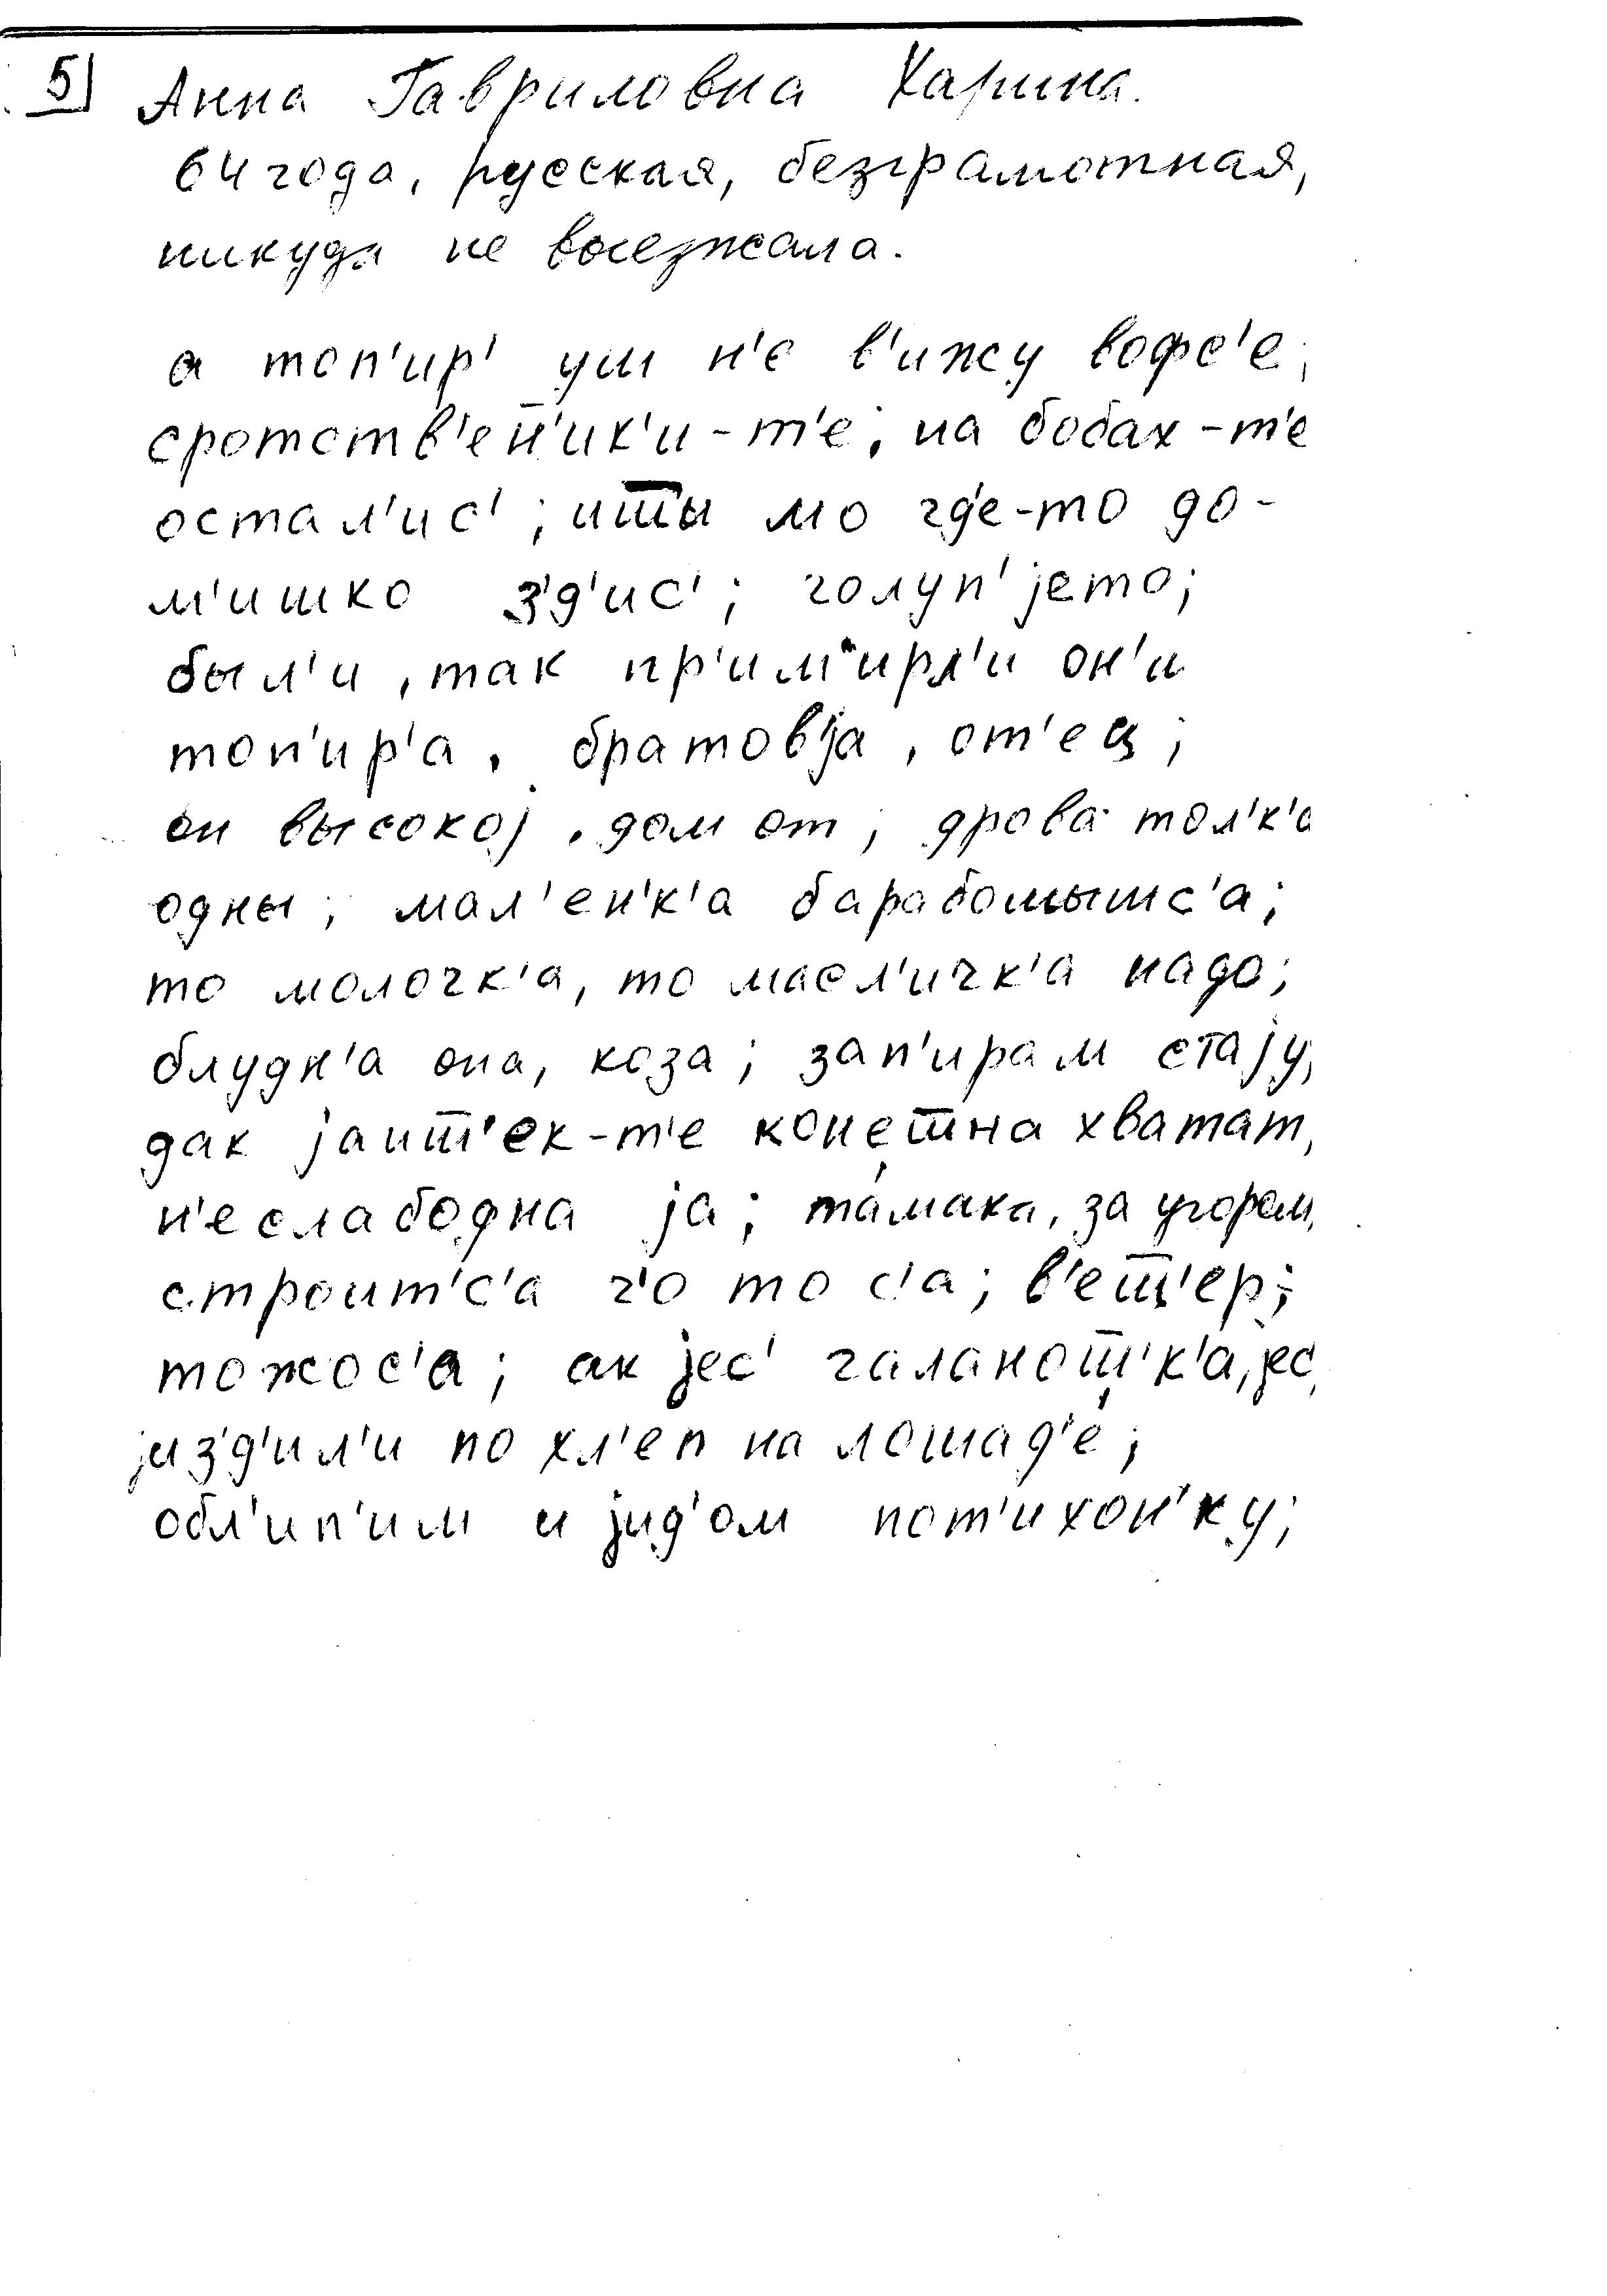 5 Анна Гавриловна Харина.
64 года, русская, безграмотная,
никуда не выезжала.
а топ'ир' уш н'е в'ижу вофс'е;
сротств'ен̅'ик'и-т'е; на бобах-т'е
остал'ис'; ишты мо где-то до-
м'ишко з'д'ис'; голуп'jето;
был'и, так пр'им'ирл'и он'и
топ'ир'а, братовjа, от'ец;
он высокоj, дом от; дрова тол'к'а
одны; мал'ен'к'а барабошышс'а;
то молочк'а, то масл'ичк'а надо;
блудн'а она, коза; зап'ирам стаjу,
дак jаиш̅'ек-т'е конешна хватат,
н'еслабодна jа; та́мака, за угорам,
строит'с'а г'о то с'а; в'еш̅'ер;
тожос'а; ак jес' галанош̅'к'а, jес',
jиз'д'ил'и по хл'еп на лошад'е́;
обл'ип'им и jид'ом пот'ихон'ку;